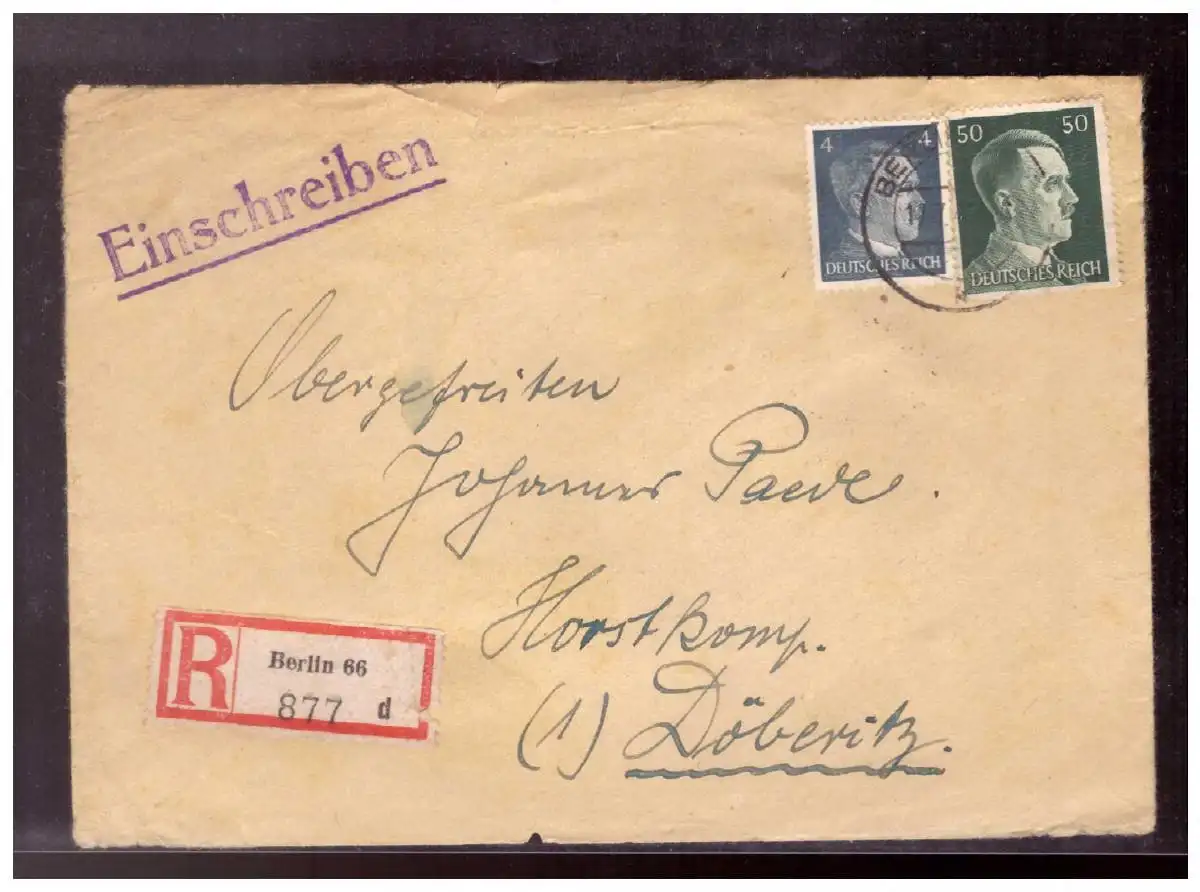 Einschreiben
4 4
DEUTSCHES REICH
50 50
DEUTSCHES REICH
Obergefreiten
Johannes Paede.
Horstkomp.
(1) Döberitz.
R
Berlin 66
877 d